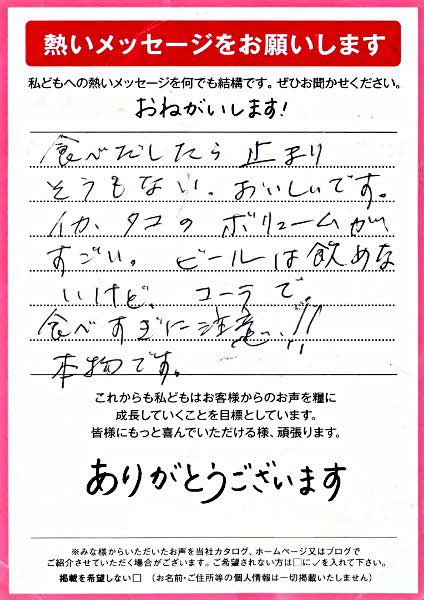 熱いメッセージをお願いします
私どもへの熱いメッセージを何でも結構です。ぜひお聞かせください。
おねがいします!
食べだしたら止まり
そうもない。おいしいです。
イカ、タコのボリュームが
すごい。ビールは飲めな
いけど、コーラで。
食べすぎに注意っ!!
本物です。
これからも私どもはお客様からのお声を糧に
成長していくことを目標としています。
皆様にもっと喜んでいただける様、頑張ります。
ありがとうございます
※みな様からいただいたお声を当社カタログ、ホームページ又はブログで
ご紹介させていただく場合がございます。ご希望されない方は□に✓を入れて下さい。
掲載を希望しない□ (お名前・ご住所等の個人情報は一切掲載いたしません)